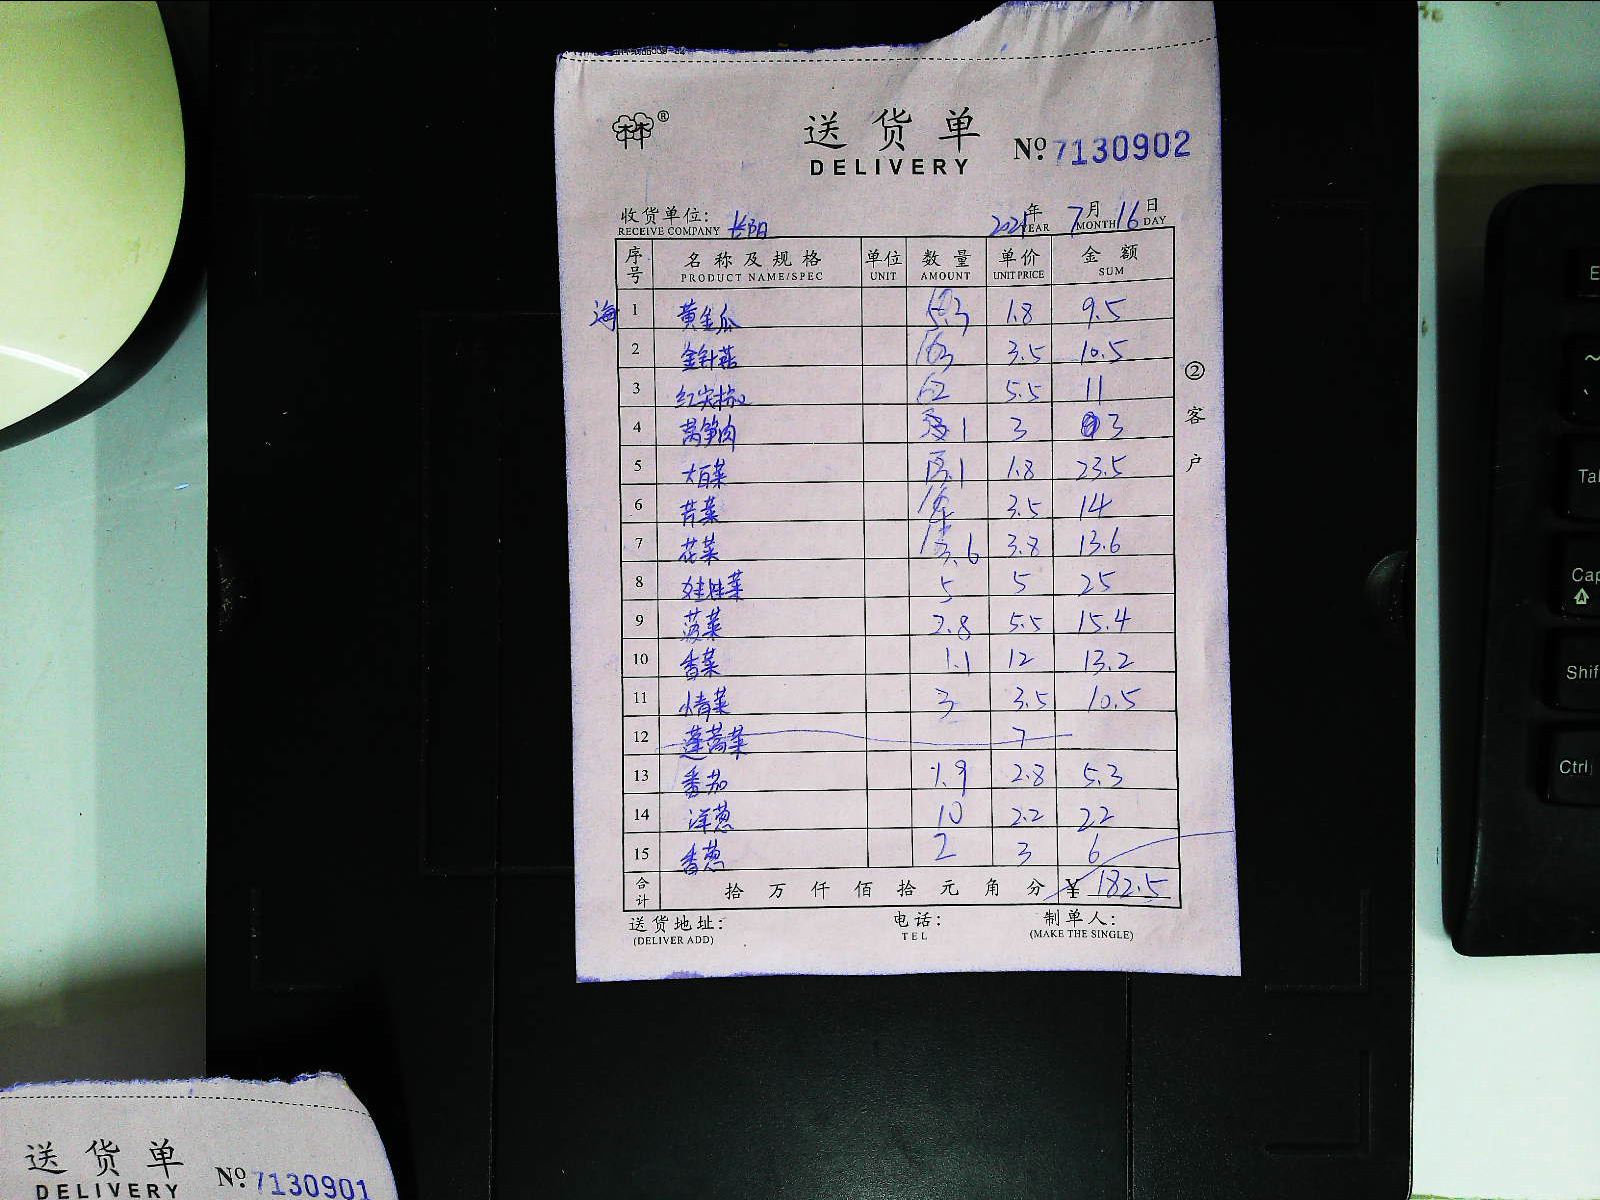 送货单
DELIVERY
№ 7130902
收货单位: 长阳 2021年 7月 16日
RECEIVE COMPANY YEAR MONTH DAY
序号 名称及规格 单位 数量 单价 金额
PRODUCT NAME/SPEC UNIT AMOUNT UNIT PRICE SUM
海 1 黄金瓜 5.3 1.8 9.5
2 金针菇 3 3.5 10.5
3 红尖椒 2 5.5 11
4 莴笋肉 1 3 3
5 大白菜 13.1 1.8 23.5
6 芹菜 4 3.5 14
7 花菜 3.6 3.8 13.6
8 娃娃菜 5 5 25
9 菠菜 2.8 5.5 15.4
10 香菜 1.1 12 13.2
11 青菜 3 3.5 10.5
12 蓬蒿菜 7
13 番茄 1.9 2.8 5.3
14 洋葱 10 2.2 22
15 香葱 2 3 6
合计 拾 万 仟 佰 拾 元 角 分 ¥ 182.5
送货地址: 电话: 制单人:
(DELIVER ADD) TEL (MAKE THE SINGLE)
②客户
送货单
DELIVERY
№ 7130901
Tab
Shif
Ctrl